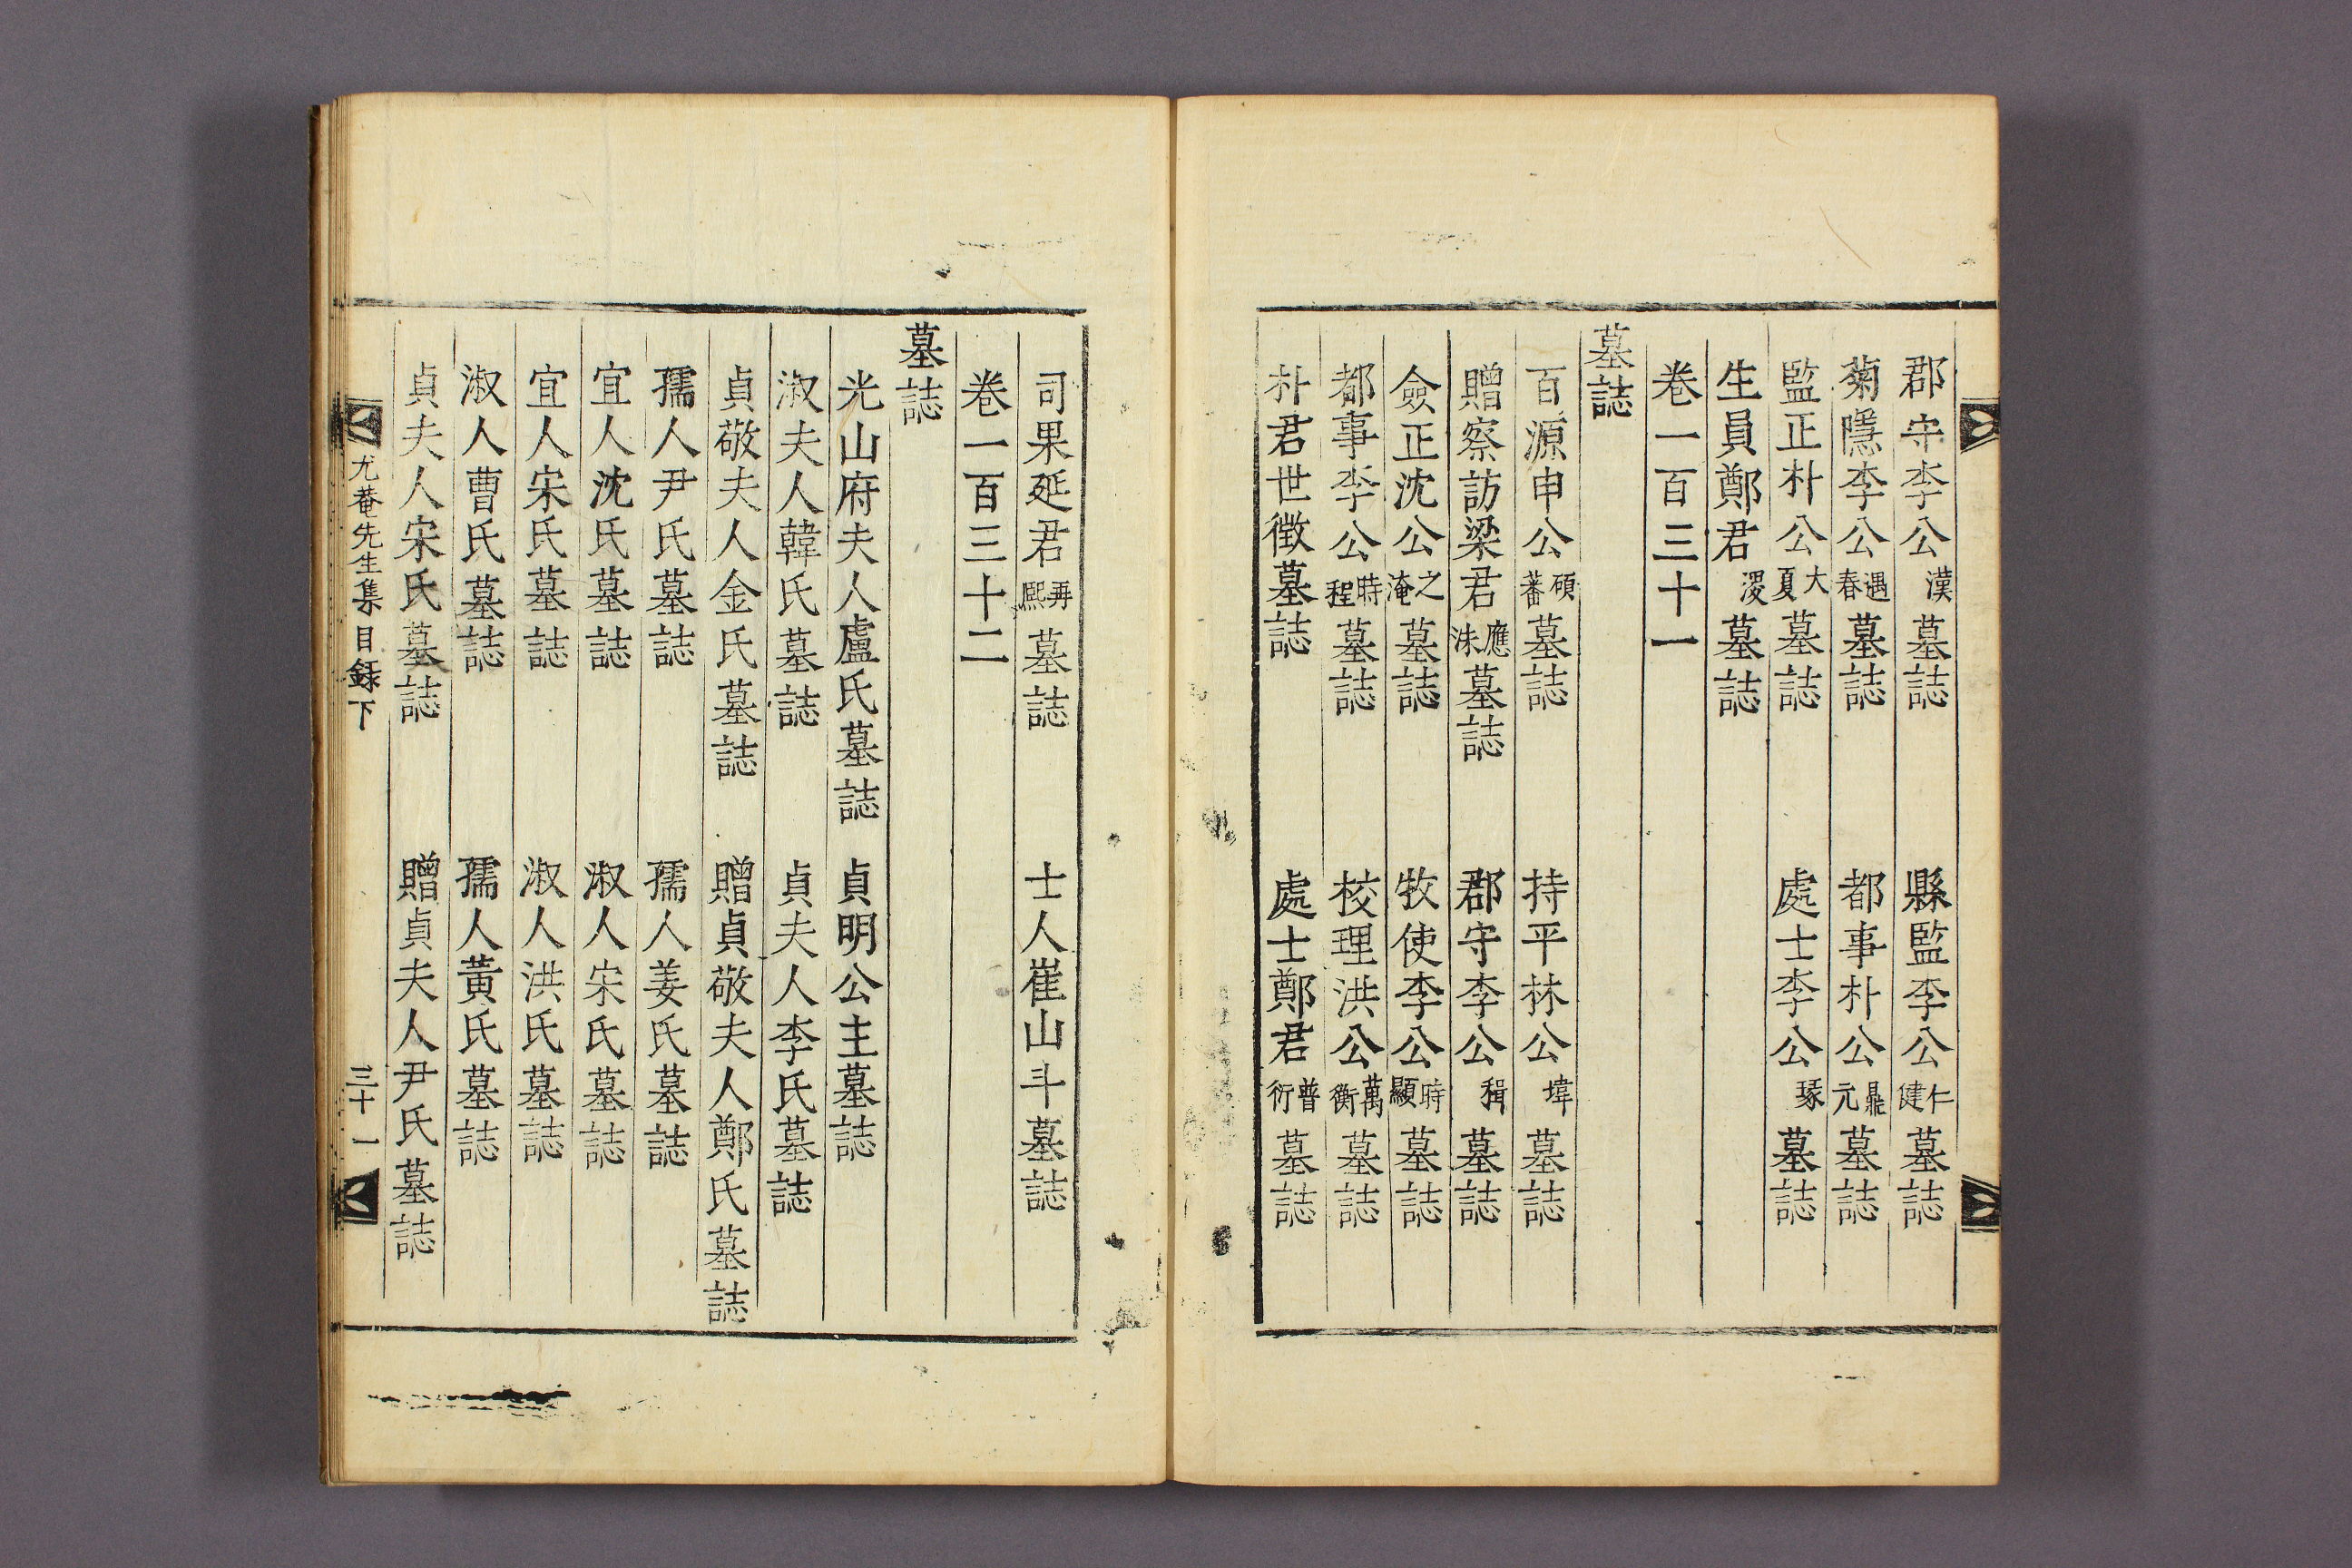 郡守李公漢墓誌 縣監李公仁健墓誌
菊隱李公遇春墓誌 都事朴公鼎元墓誌
監正朴公大夏墓誌 處士李公琢墓誌
生員鄭君溭墓誌
卷一百三十一
墓誌
百源申公碩蕃墓誌 持平林公㙔墓誌
贈察訪梁君應洙墓誌 郡守李公䅥墓誌
僉正沈公之淹墓誌 牧使李公時顯墓誌
都事李公時程墓誌 校理洪公萬衡墓誌
朴君世徵墓誌 處士鄭君普衍墓誌
司果延君再熙墓誌 士人崔山斗墓誌
卷一百三十二
墓誌
光山府夫人盧氏墓誌 貞明公主墓誌
淑夫人韓氏墓誌 貞夫人李氏墓誌
貞敬夫人金氏墓誌 贈貞敬夫人鄭氏墓誌
孺人尹氏墓誌 孺人姜氏墓誌
宜人沈氏墓誌 淑人宋氏墓誌
宜人宋氏墓誌 淑人洪氏墓誌
淑人曹氏墓誌 孺人黃氏墓誌
貞夫人宋氏墓誌 贈貞夫人尹氏墓誌
尤菴先生集目錄下 三十一